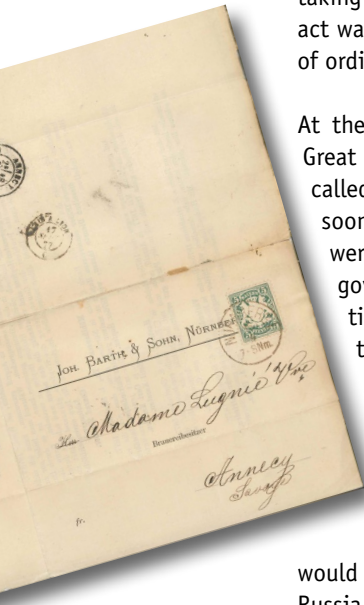 taking
act wa
of ordi
At the
Great
called
soon
wer
gov
ti
t
would
Russia
ANNECY
JOH. BARTH & SOHN, NÜRNBERG
5
7-8Nm.
Madame Lugnié Vve
Brauereibesitzer
Annecy
Savoye
fr.